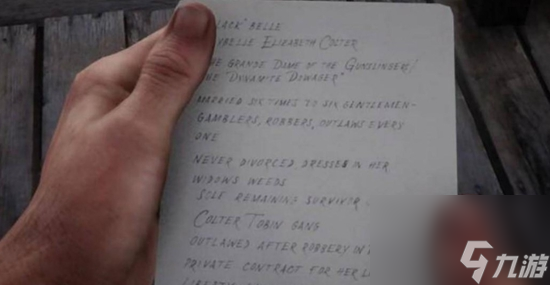 LACK' BELLE
YBELLE ELIZABETH COLTER
HE GRANDE DAME OF THE GUNSLINGERS/
HE "DYNAMITE DOWAGER"
MARRIED SIX TIMES TO SIX GENTLEMEN-
GAMBLERS, ROBBERS, OUTLAWS EVERY
ONE
NEVER DIVORCED DRESSES IN HER
WIDOWS WEEDS
SOLE REMAINING SURVIVOR
COLTER TOBIN GANG
OUTLAWED AFTER ROBBERY IN
PRIVATE CONTRACT FOR HER
九游